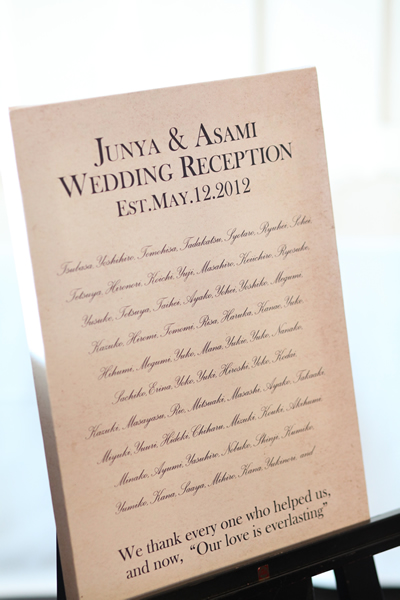 JUNYA & ASAMI
WEDDING RECEPTION
EST.MAY.12.2012
Tsubasa, Yoshihiro, Tomohisa, Tadakatsu, Syotaro, Ryuhei, Sohei,
Tetsuya, Hironori, Koichi, Yuji, Masahiro, Kouichiro, Ryosuke,
Yusuke, Tetsuya, Taihei, Ayako, Yohei, Yoshiko, Megumi,
Kazuko, Hiromi, Tomomi, Risa, Haruka, Kanae, Yuko,
Hifumi, Megumi, Yuko, Mana, Yukie, Yuki, Nanako,
Sachiko, Erina, Yoko, Yuki, Hiroshi, Yuko, Kodai,
Kazuki, Masayasu, Rie, Mitsuaki, Masashi, Ayako, Takaaki
Miyuki, Yuuri, Hideki, Chiharu, Mizuki, Kouki, Akihumi
Minako, Ayumi, Yasuhiro, Nobuko, Shinji, Kumiko,
Yumiko, Kana, Saaya, Mihiro, Kana, Yukinori, and
We thank every one who helped us,
and now, “Our love is everlasting”